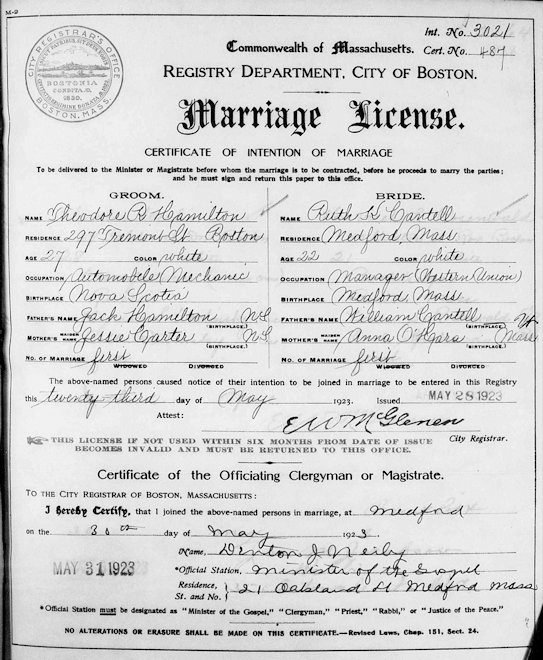 M-9
Int. No. 3021
Commonwealth of Massachusetts. Cert. No. 487
CITY REGISTRAR'S OFFICE
BOSTONIA
CONDITA A.D.
1630.
BOSTON, MASS.
REGISTRY DEPARTMENT, CITY OF BOSTON.
Marriage License.
CERTIFICATE OF INTENTION OF MARRIAGE
To be delivered to the Minister or Magistrate before whom the marriage is to be contracted, before he proceeds to marry the parties;
and he must sign and return this paper to this office.
GROOM. BRIDE.
NAME Theodore R Hamilton NAME Ruth K Cantell
RESIDENCE 297 Tremont St Boston RESIDENCE Medford, Mass
AGE 27 COLOR white AGE 22 COLOR white
OCCUPATION Automobile Mechanic OCCUPATION Manager (Western Union)
BIRTHPLACE Nova Scotia BIRTHPLACE Medford Mass
FATHER'S NAME Jack Hamilton NS (BIRTHPLACE.) FATHER'S NAME William Cantell (BIRTHPLACE.)
MOTHER'S MAIDEN NAME Jessie Carter NS (BIRTHPLACE.) MOTHER'S MAIDEN NAME Anna O'Hara Mass (BIRTHPLACE.)
NO. OF MARRIAGE first WIDOWED DIVORCED NO. OF MARRIAGE first WIDOWED DIVORCED
The above-named persons caused notice of their intention to be joined in marriage to be entered in this Registry
this twenty third day of May 1923. Issued MAY 28 1923
Attest: E W McGlenen
City Registrar.
THIS LICENSE IF NOT USED WITHIN SIX MONTHS FROM DATE OF ISSUE
BECOMES INVALID AND MUST BE RETURNED TO THIS OFFICE.
Certificate of the Officiating Clergyman or Magistrate.
TO THE CITY REGISTRAR OF BOSTON, MASSACHUSETTS:
I hereby Certify, that I joined the above-persons in marriage, at Medford
on the 30th day of May 1923.
Name, Denton J Neily
MAY 31 1923 *Official Station, Minister of the Gospel
Residence, St. and No. 121 Oakland St Medford Mass
*Official Station must be designated as "Minister of the Gospel," "Clergyman," "Priest," "Rabbi," or "Justice of the Peace."
NO ALTERATIONS OR ERASURE SHALL BE MADE ON THIS CERTIFICATE.—Revised Laws, Chap. 151, Sect. 24.